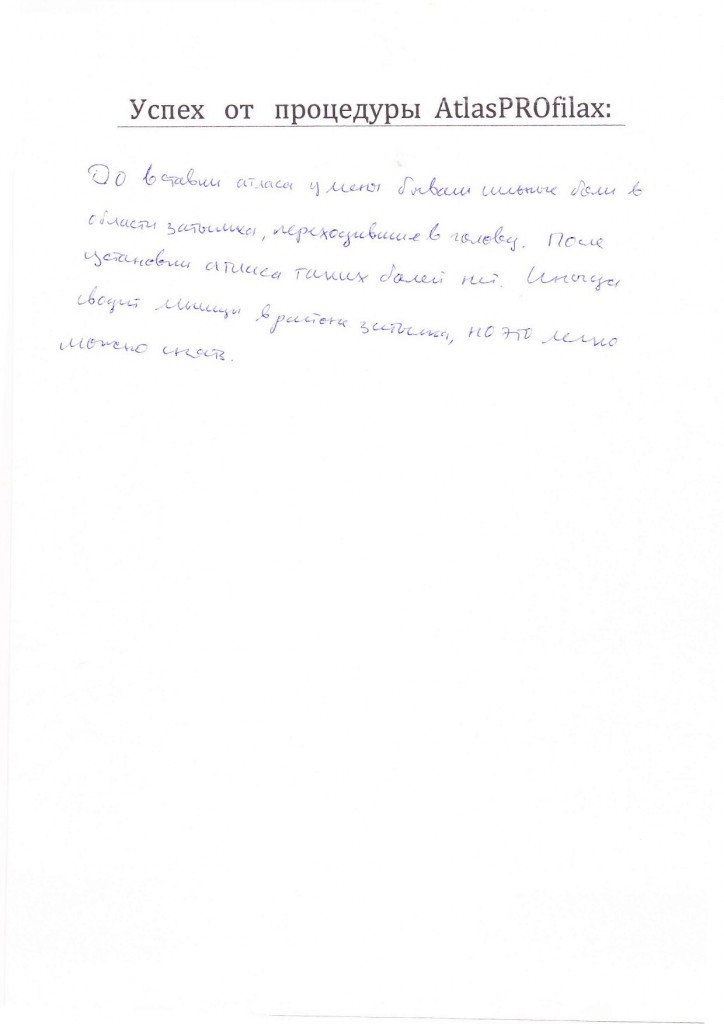 Успех от процедуры AtlasPROfilax:
До вставки атласа у меня бывали сильные боли в
области затылка, переходившие в голову. После
установки атласа таких болей нет. Иногда
сводит мышцы в районе затылка, но это легко
можно снять.